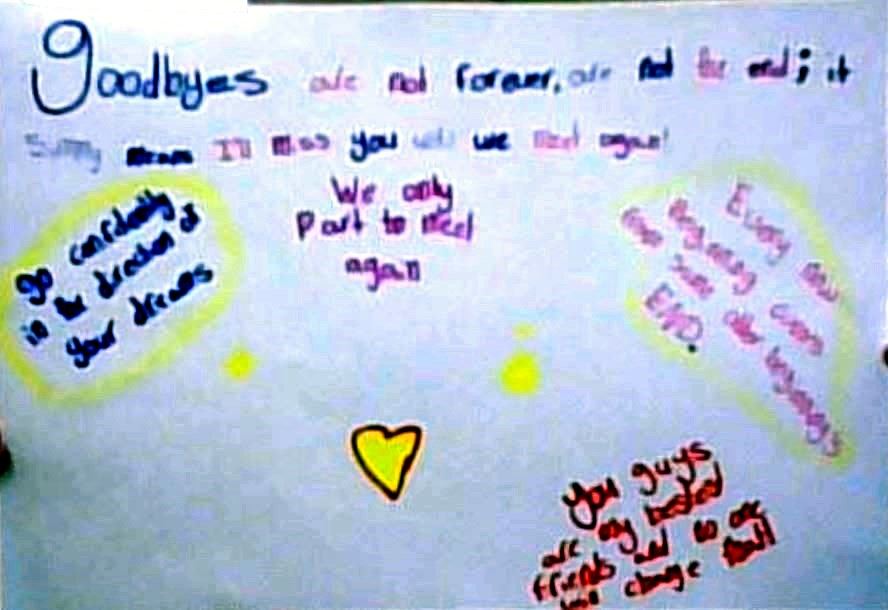 Goodbyes are not forever, are not the end; it
Simply means I'll miss you until we meet again!
We only
Part to Meet
again
go confidently
in the direction of
your dreams
Every new
Beginning comes
from some other beginnings
END.
you guys
are my bested
friends and no one
will change that!